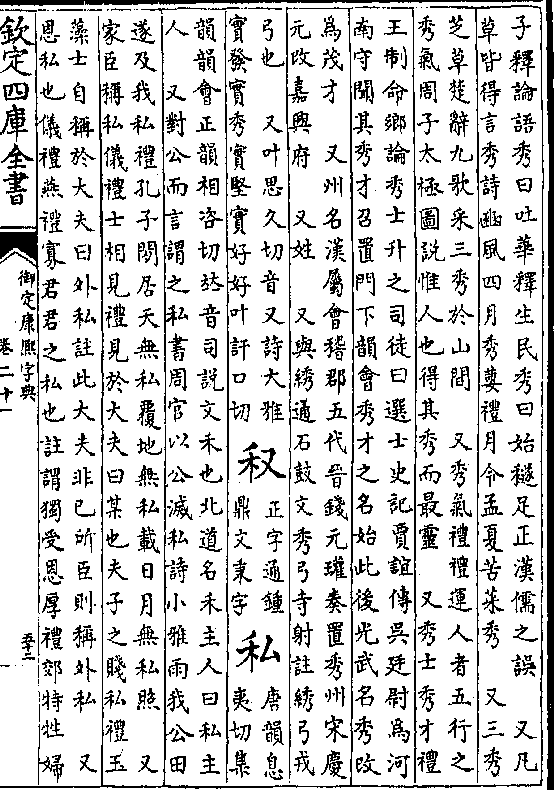 子釋論語秀曰吐華釋生民秀曰始穟足正漢儒之誤　又凡
草皆得言秀詩豳風四月秀葽禮月令孟夏苦菜秀　又三秀
芝草楚辭九歌采三秀於山間　又秀氣禮禮運人者五行之
秀氣周子太極圖說惟人也得其秀而最靈　又秀士秀才禮
王制命鄉論秀士升之司徒曰選士史記賈誼傳吳廷尉為河
南守聞其秀才召置門下韻會秀才之名始此後光武名秀改
為茂才　又州名漢屬會稽郡五代晉錢元瓘奏置秀州宋慶
元改嘉興府　又姓　又與綉通石鼓文秀弓寺射註綉弓戎
弓也　又叶思久切音又詩大雅
實發實秀實堅實好好叶許口切
𥝢
正字通鍾
鼎文秉字
私
唐韻息
夷切集
韻韻會正韻相咨切𠀤音司說文禾也北道名禾主人曰私主
人　又對公而言謂之私書周官以公滅私詩小雅雨我公田
遂及我私禮孔子閒居天無私覆地無私載日月無私照　又
家臣稱私儀禮士相見禮見於大夫曰某也夫子之賤私禮玉
藻士自稱於大夫曰外私註此大夫非己所臣則稱外私　又
恩私也儀禮燕禮寡君君之私也註謂獨受恩厚禮郊特牲婦
欽定四庫全書
御定康熙字典
卷二十一